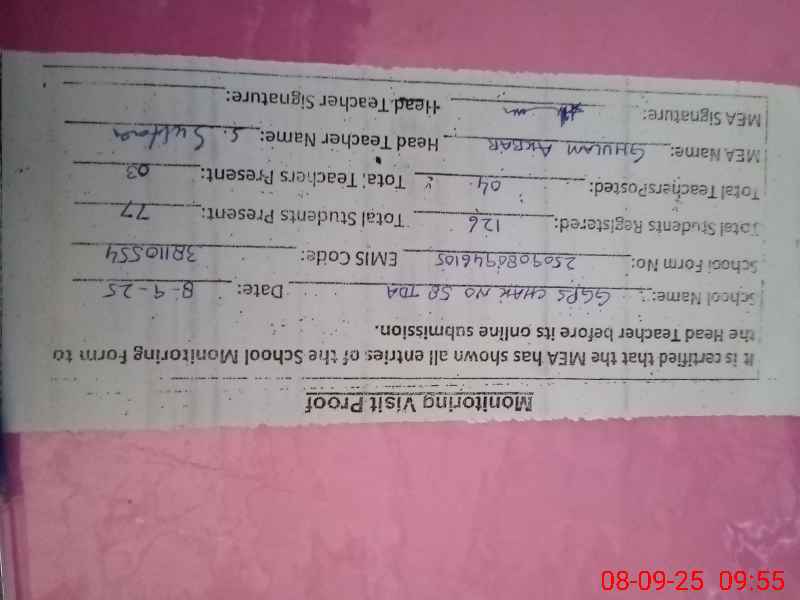 Monitoring Visit Proof
It is certified that the MEA has shown all entries of the School Monitoring Form to
the Head Teacher before its online submission.
School Name: GGPS CHAK NO 5B TDA Date: 8-9-25
School Form No: 2509080946105 EMIS Code: 38110554
Total Students Registered: 126 Total Students Present: 77
Total Teachers Posted: 04 Total Teachers Present: 03
MEA Name: GHULAM AKBAR Head Teacher Name: S. Sultana
MEA Signature: Head Teacher Signature:
08-09-25 09:55